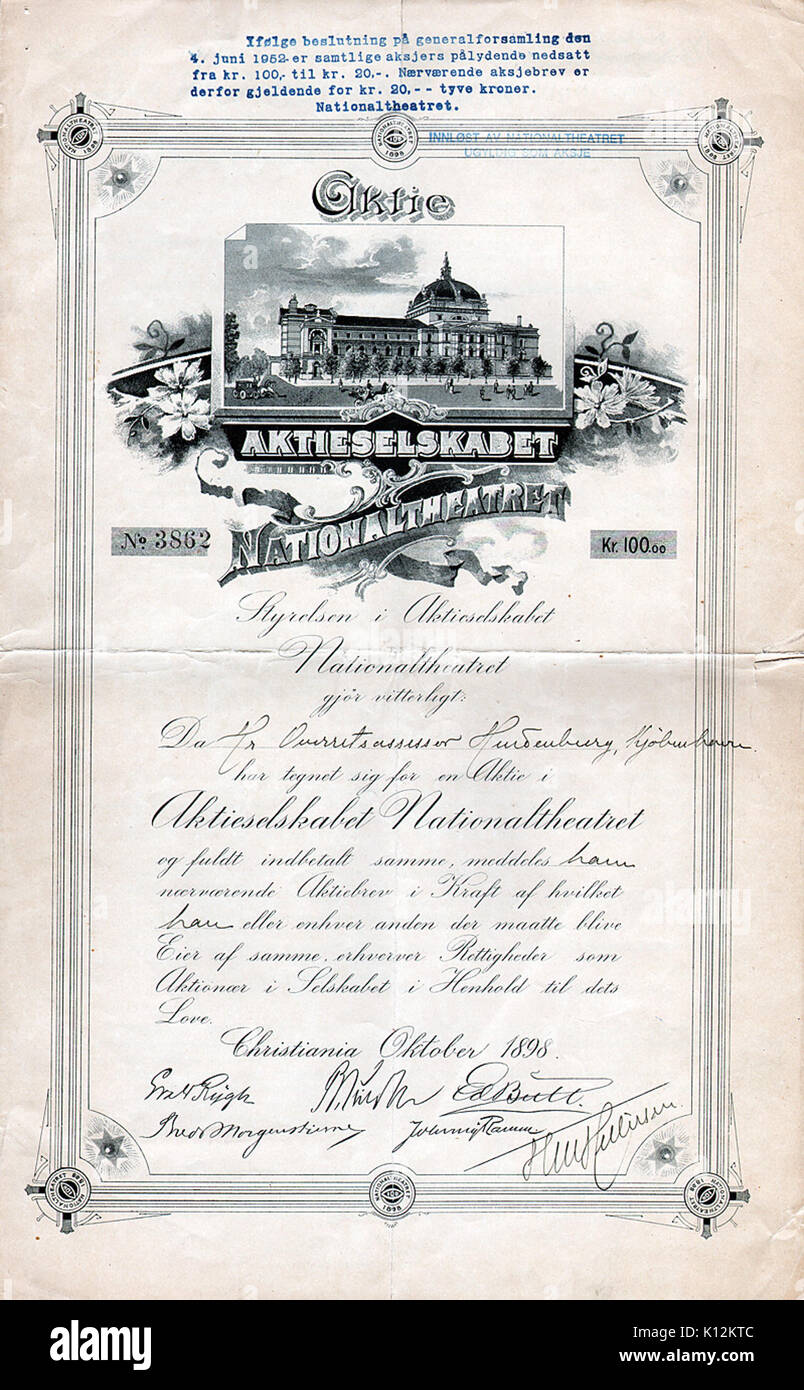 Ifølge beslutning på generalforsamling den
4. juni 1952 er samtlige aksjers pålydende nedsatt
fra kr. 100,- til kr. 20,-. Nærværende aksjebrev er
derfor gjeldende for kr. 20,-- tyve kroner.
Nationaltheatret.
INNLØST AV NATIONALTHEATRET
UGYLDIG SOM AKSJE
NATIONALTHEATRET 1898
NATIONALTHEATRET 1898
NATIONALTHEATRET 1898
Aktie
AKTIESELSKABET
NATIONALTHEATRET
No 3862
Kr. 100.00
Styrelsen i Aktieselskabet
Nationaltheatret
gjör vitterligt:
Da Hr Overretsassessor Hindenburg, Kjøbenhavn
har tegnet sig for en Aktie i
Aktieselskabet Nationaltheatret
og fuldt indbetalt samme, meddeles ham
nærværende Aktiebrev i Kraft af hvilket
han eller enhver anden der maatte blive
Eier af samme, erhverver Rettigheder som
Aktionær i Selskabet i Henhold til dets
Love.
Christiania Oktober 1898.
Evald Rygh
Ed Bull.
Bredo Morgenstierne
Johannes Ramm
NATIONALTHEATRET 1898
NATIONALTHEATRET 1898
NATIONALTHEATRET 1898
alamy
Image ID: K12KTC
www.alamy.com